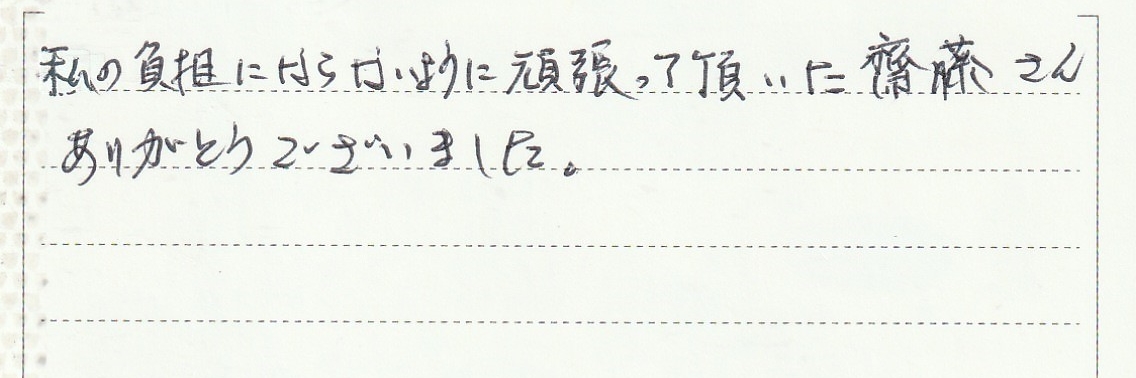 私の負担にならないように頑張って頂いた齋藤さん
ありがとうございました。